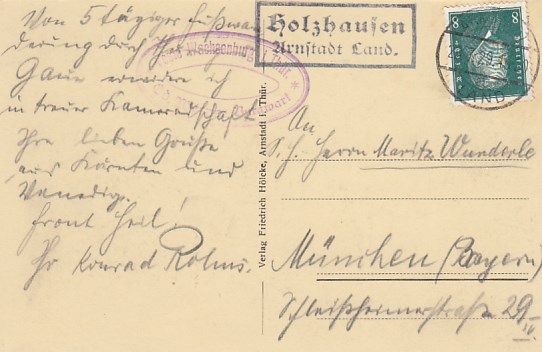 Von 5 tägiger Fußwan
derung durch
Gaue erwidere ich
in treuer Kameradschaft
Ihre lieben Grüße
aus Kärnten und
Venedig.
Front Heil!
Ihr Konrad
Holzhausen
Arnstadt Land.
8 8
Verlag Friedrich Hölcke, Arnstadt i. Thür.
An
Herrn Moritz Wunderle
München (Bayern)
Schleißheimerstraße 29